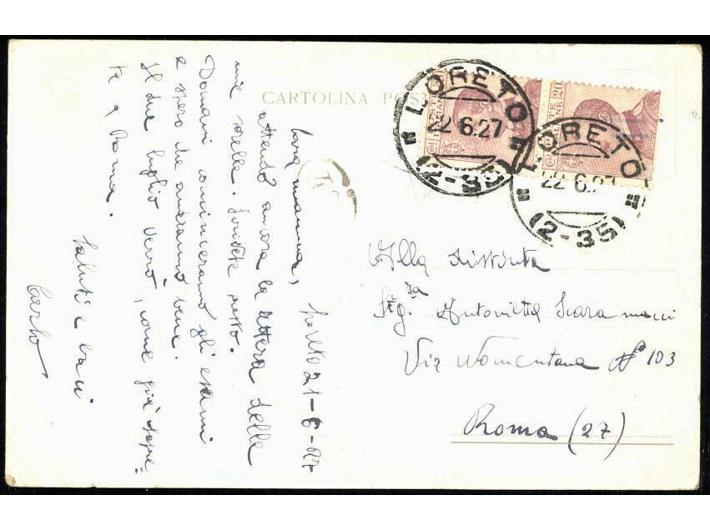 CARTOLINA POS
LORETO
22 6.27
(2-35)
LORETO
22 6.27
(2-35)
Cara mamma, Loreto 21-6-27
attendo ancora la lettera delle
mie sorelle. Scrivete presto.
Domani cominceranno gli esami
e spero che andranno bene.
Il due luglio verrò, come già sape=
te a Roma.
Saluti e baci
Carlo
Alla distinta
Sig.ra Antonietta Scaramucci
Via Nomentana No 103
Roma (27)